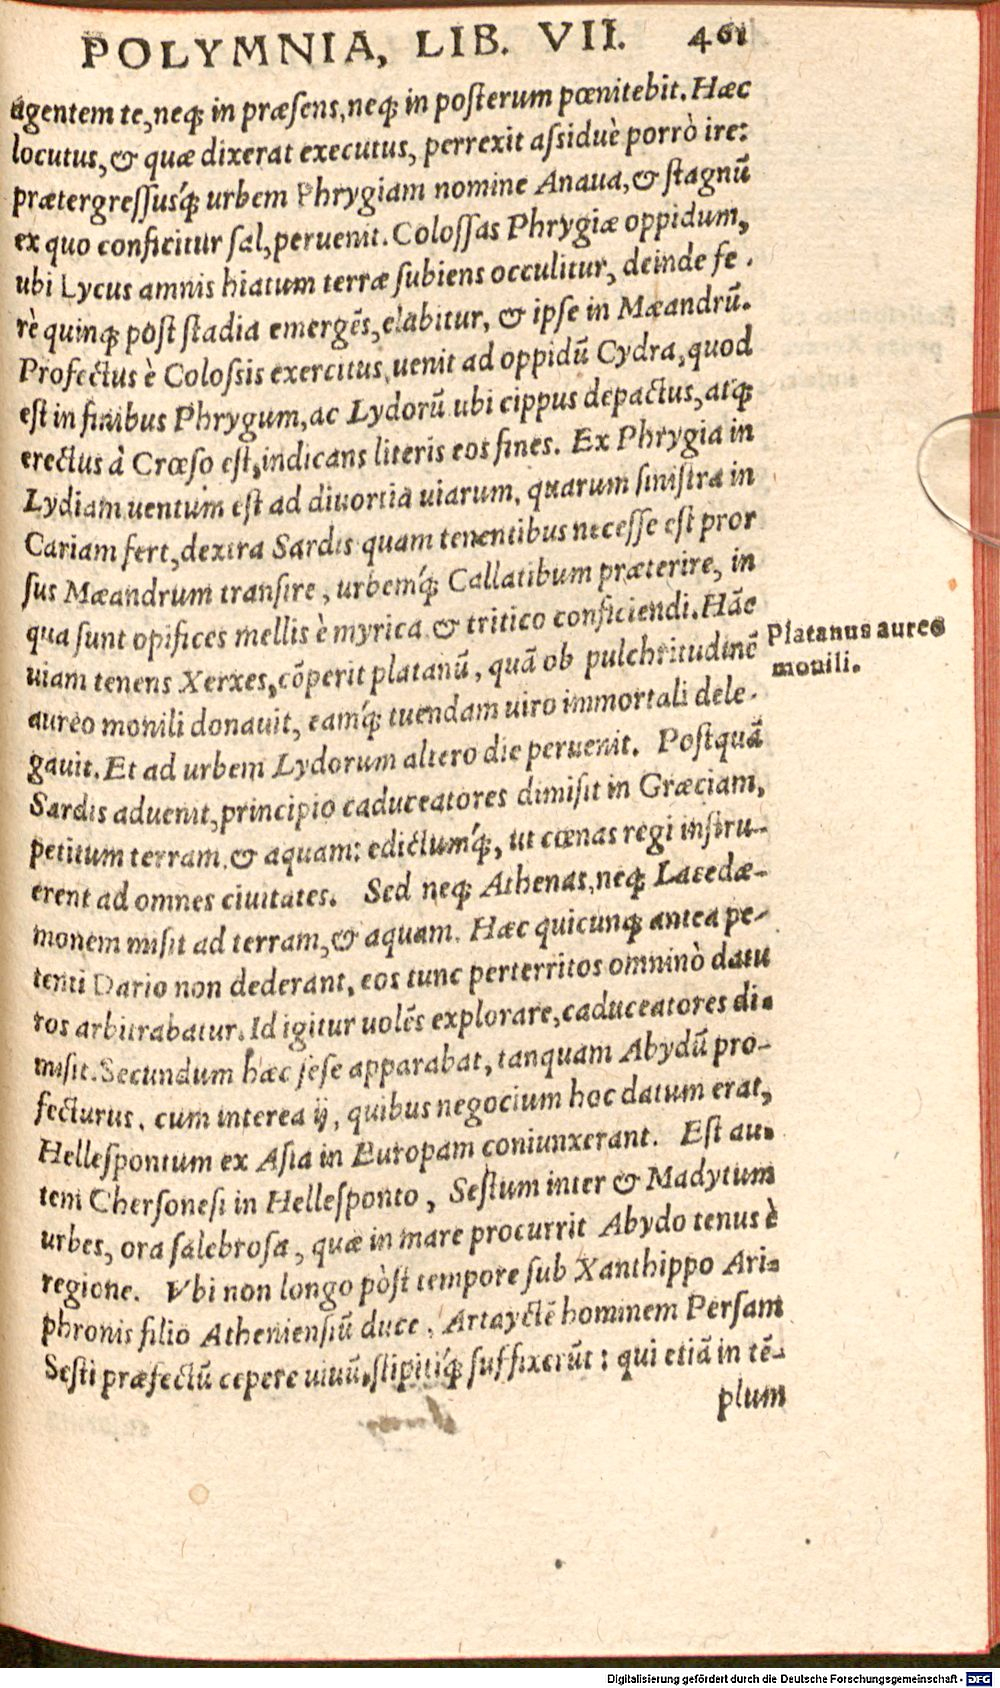 POLYMNIA, LIB. VII. 461
agentem te, neq; in præsens, neq; in posterum pœnitebit. Hæc
locutus, & quæ dixerat executus, perrexit assiduè porrò ire:
prætergressusq́; urbem Phrygiam nomine Anaua, & stagnũ
ex quo conficitur sal, peruenit. Colossas Phrygiæ oppidum,
ubi Lycus amnis hiatum terræ subiens occulitur, deinde fe-
rè quinq; pòst stadia emergẽs, elabitur, & ipse in Mæandrũ.
Profectus è Colossis exercitus, uenit ad oppidũ Cydra, quod
est in finibus Phrygum, ac Lydorũ ubi cippus depactus, atq;
erectus à Crœso est, indicans literis eos fines. Ex Phrygia in
Lydiam uentum est ad diuortia uiarum, quarum sinistra in
Cariam fert, dextra Sardis quam tenentibus necesse est pror
sus Mæandrum transire, urbemq́; Callatibum præterire, in
qua sunt opifices mellis è myrica & tritico conficiendi. Hãc
uiam tenens Xerxes, cõperit platanũ, quã ob pulchritudinẽ
aureo monili donauit, eamq́; tuendam uiro immortali dele-
gauit. Et ad urbem Lydorum altero die peruenit. Postquã
Sardis aduenit, principio caduceatores dimisit in Græciam,
petitum terram, & aquam: edictumq́;, ut cœnas regi instru-
erent ad omnes ciuitates. Sed neq; Athenas, neq; Lacedæ-
monem misit ad terram, & aquam. Hæc quicunq; antea pe-
tenti Dario non dederant, eos tunc perterritos omninò datu
ros arbitrabatur. Id igitur uolẽs explorare, caduceatores di-
misit. Secundum hæc sese apparabat, tanquam Abydũ pro-
fecturus, cum interea ij, quibus negocium hoc datum erat,
Hellespontum ex Asia in Europam coniunxerant. Est au-
tem Chersonesi in Hellesponto, Sestum inter & Madytum
urbes, ora salebrosa, quæ in mare procurrit Abydo tenus è
regione. Vbi non longo pòst tempore sub Xanthippo Ari-
phronis filio Atheniensiũ duce, Artayctẽ hominem Persam
Sesti præfectũ cepere uiuũ, stipitiq́; suffixerũt: qui etiã in tẽ-
plum
Platanus aureo
monili.
Digitalisierung gefördert durch die Deutsche Forschungsgemeinschaft - DFG